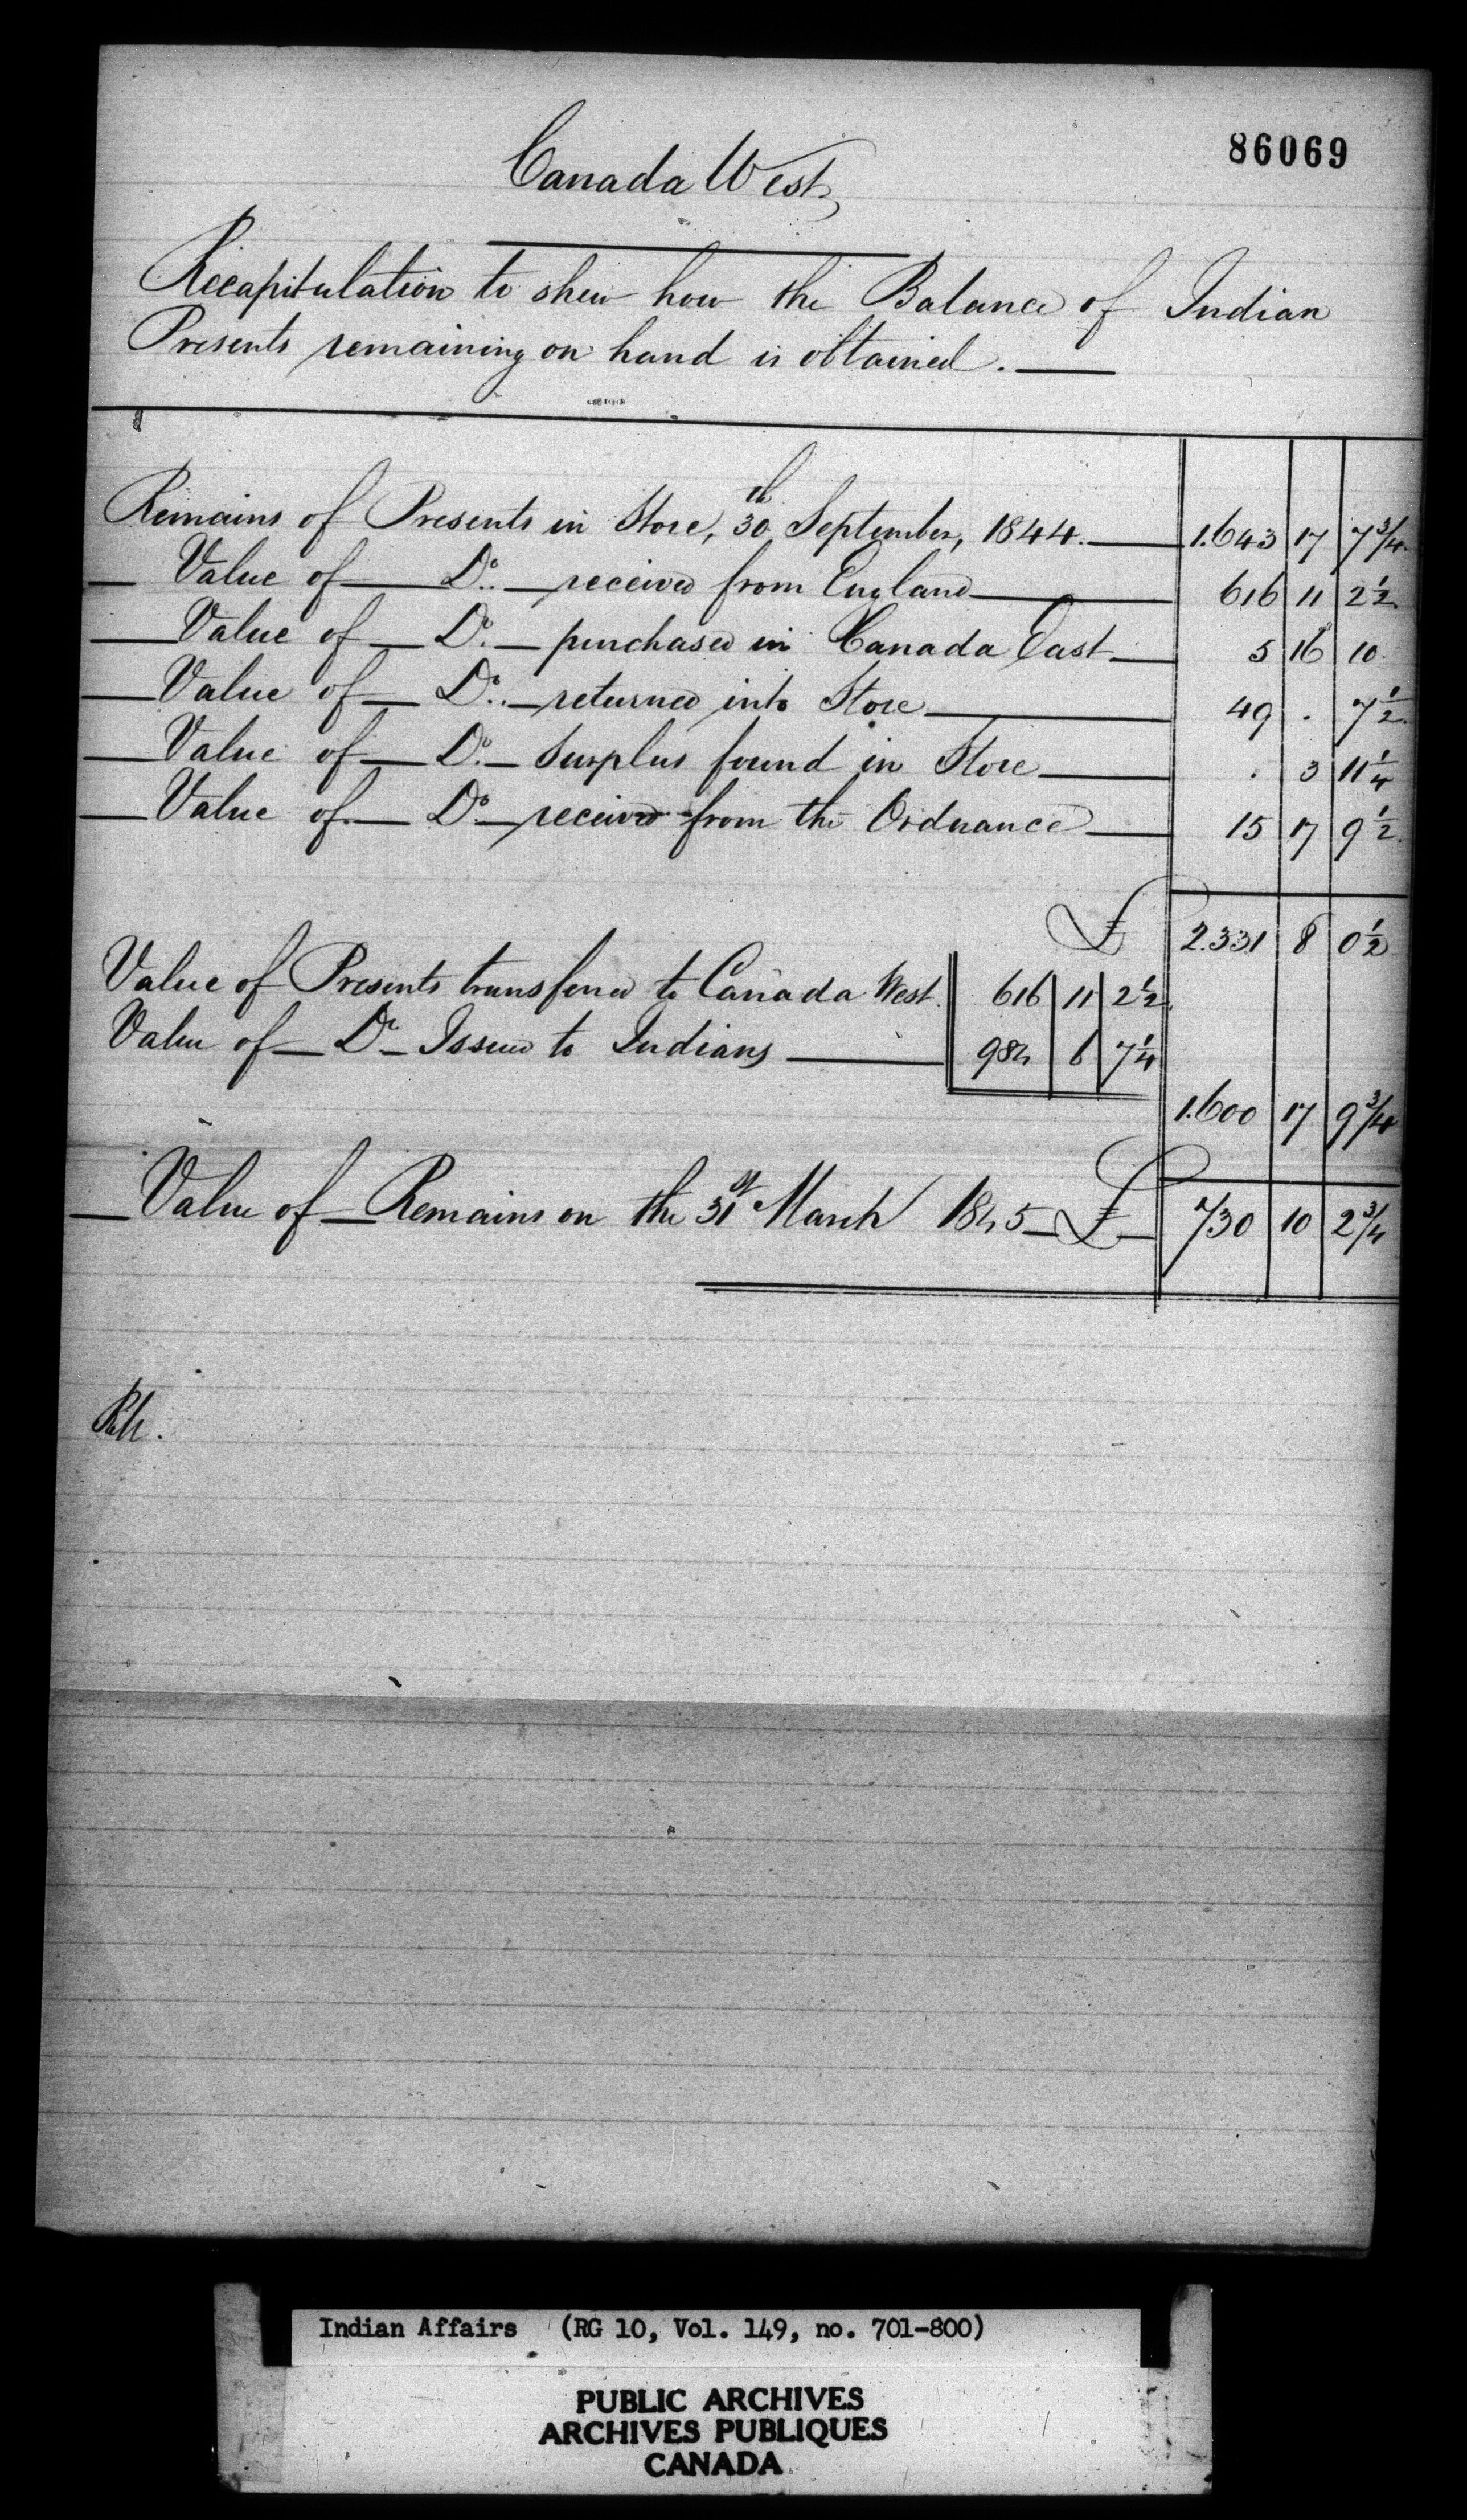 86069
Canada West,
Recapitulation to shew how the Balance of Indian
Presents remaining on hand is obtained.
Remains of Presents in Store, 30th September, 1844. 1.643 17 7 3/4
Value of Do. received from England 616 11 2 1/2
Value of Do. purchased in Canada East 5 16 10
Value of Do. returned into Store 49 . 7 1/2
Value of Do. Surplus found in Store . 3 11 1/4
Value of Do received from the Ordnance 15 17 9 1/2
£ 2.331 8 0 1/2
Value of Presents transferred to Canada West. 616 11 2 1/2
Value of Do Issued to Indians 984 6 7 1/4
1.600 17 9 3/4
Value of Remains on the 31st March 1845 £ 730 10 2 3/4
Indian Affairs (RG 10, Vol. 149, no. 701-800)
PUBLIC ARCHIVES
ARCHIVES PUBLIQUES
CANADA